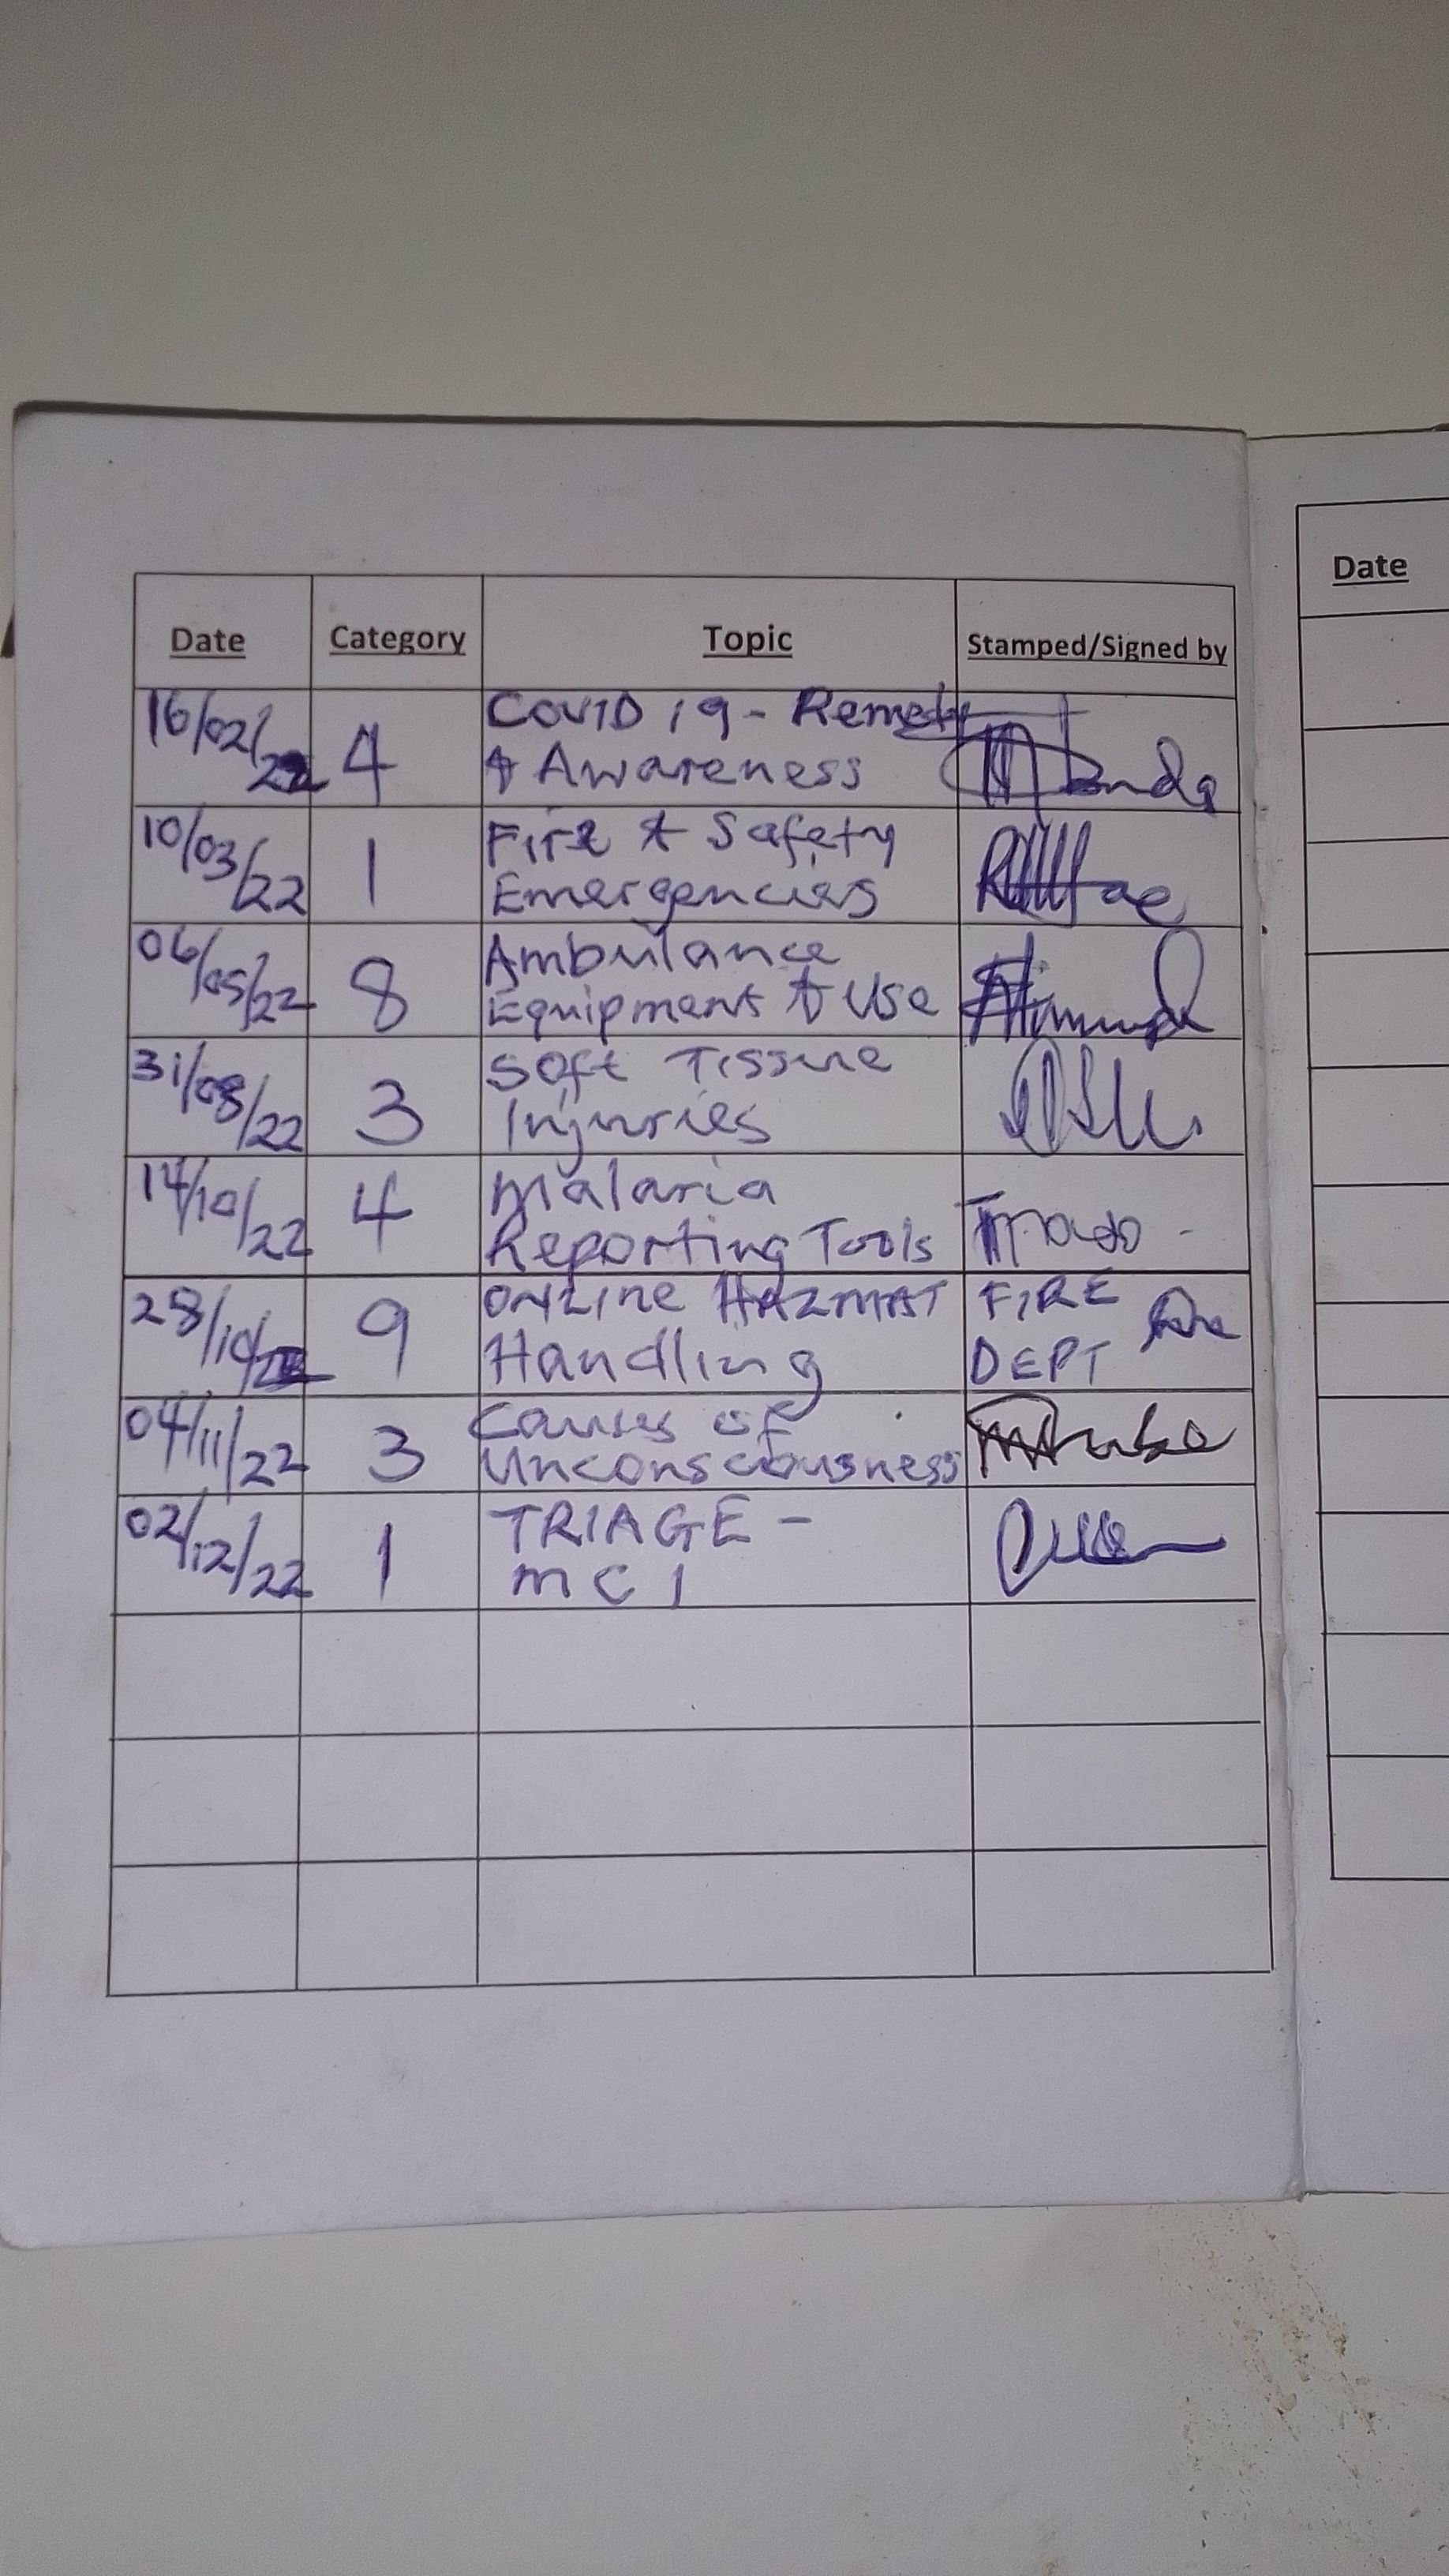 Date Category Topic Stamped/Signed by
16/02/22 4 COVID 19 - Remedy
& Awareness
10/03/22 1 Fire & Safety
Emergencies
06/05/22 8 Ambulance
Equipment & Use
31/08/22 3 Soft Tissue
Injuries
14/10/22 4 Malaria
Reporting Tools
28/10/22 9 ONLine HAZMAT FIRE
Handling DEPT
04/11/22 3 Causes of
Unconsciousness
02/12/22 1 TRIAGE -
MCI
Date